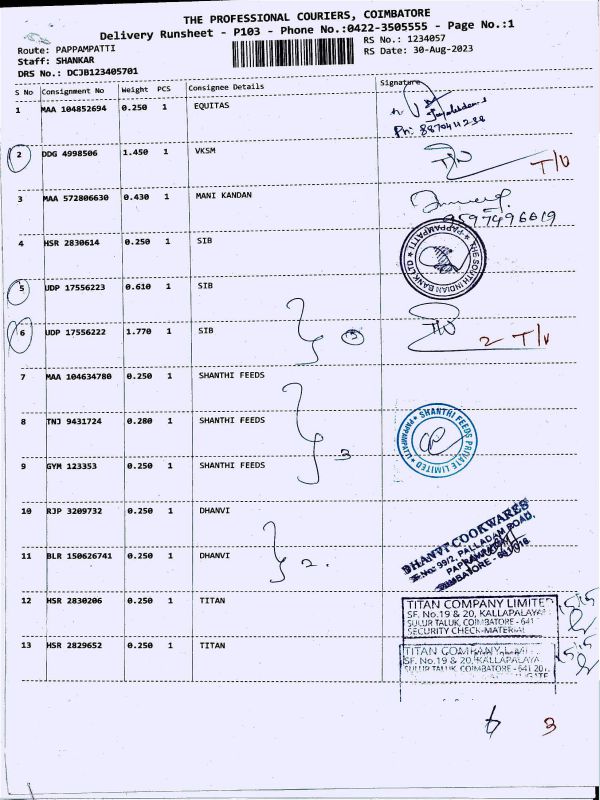 THE PROFESSIONAL COURIERS, COIMBATORE
Delivery Runsheet - P103 - Phone No.:0422-3505555 - Page No.:1
Route: PAPPAMPATTI
RS No.: 1234057
Staff: SHANKAR
RS Date: 30-Aug-2023
DRS No.: DCJB123405701
S No Consignment No Weight PCS Consignee Details Signature
1 MAA 104852694 0.250 1 EQUITAS
Ph: 8870411238
2 DDG 4998506 1.450 1 VKSM T/V
3 MAA 572806630 0.430 1 MANI KANDAN
9597496619
4 HSR 2830614 0.250 1 SIB
THE SOUTH INDIAN BANK LTD
PAPPAMPATTI
5 UDP 17556223 0.610 1 SIB
6 UDP 17556222 1.770 1 SIB 3 2 T/V
7 MAA 104634780 0.250 1 SHANTHI FEEDS
8 TNJ 9431724 0.280 1 SHANTHI FEEDS 3
SHANTHI FEEDS PRIVATE LIMITED
9 GYM 123353 0.250 1 SHANTHI FEEDS
10 RJP 3209732 0.250 1 DHANVI
DHANVI COOKWARES
99/2, PALLADAM ROAD,
11 BLR 150626741 0.250 1 DHANVI 2.
12 HSR 2830206 0.250 1 TITAN
TITAN COMPANY LIMITED
SF. No.19 & 20, KALLAPALAYAM
SULUR TALUK, COIMBATORE - 641
SECURITY CHECK-MATERIAL
13 HSR 2829652 0.250 1 TITAN
TITAN COMPANY
SF. No.19 & 20, KALLAPALAYA
SULUR TALUK COIMBATORE - 641 20
6 3